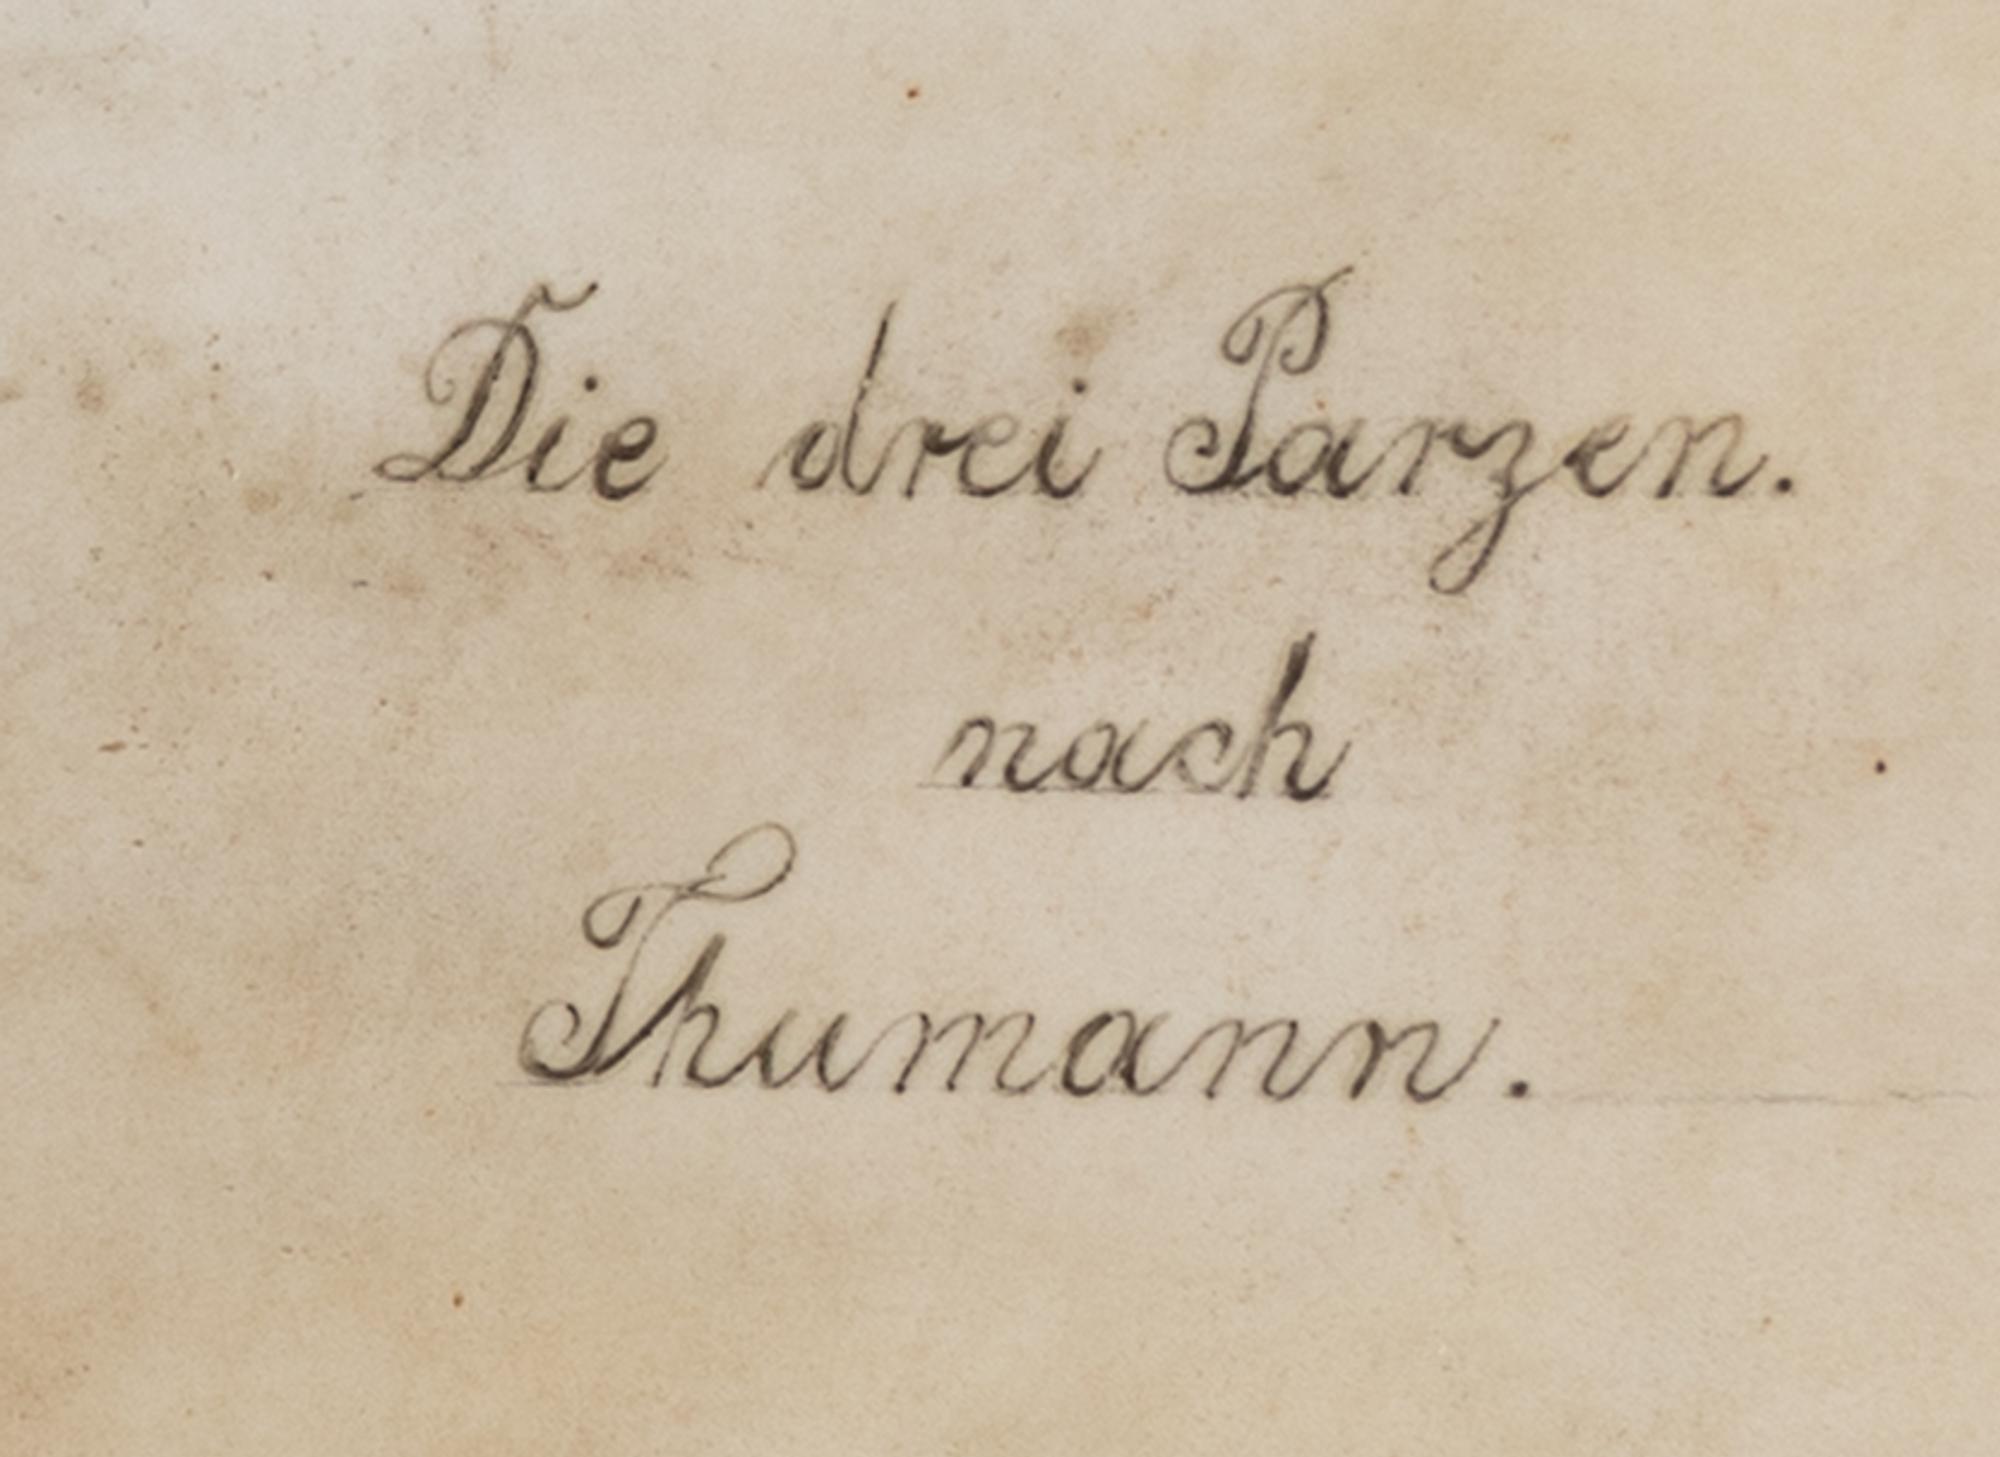 Die drei Parzen.
nach
Thumann.